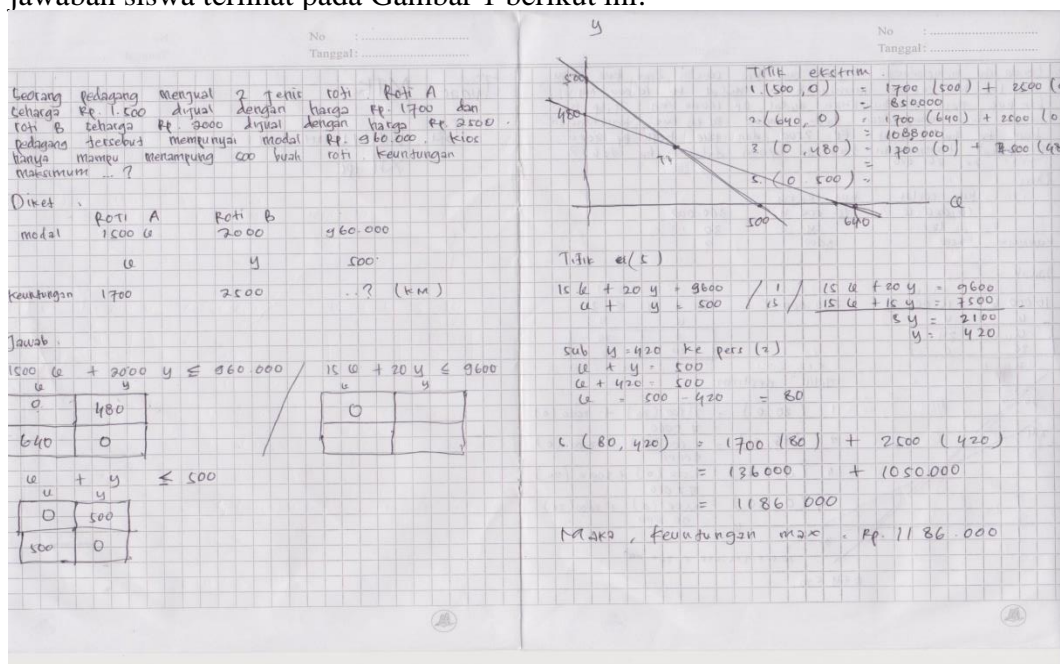 jawaban siswa terlihat pada Gambar 1 berikut ini.
No :
Tanggal :
Seorang pedagang menjual 2 jenis roti. Roti A
seharga Rp. 1.500 dijual dengan harga Rp. 1700 dan
roti B seharga Rp. 2000 dijual dengan harga Rp. 2500.
pedagang tersebut mempunyai modal Rp. 960.000. Kios
hanya mampu menampung 500 buah roti keuntungan
maksimum ... ?
Diket
ROTI A Roti B
modal 1500 x 2000 960.000
x y 500
Keuntungan 1700 2500 ..? (KM)
Jawab
1500 x + 2000 y ≤ 960.000 / 15 x + 20 y ≤ 9600
x y x y
0 480 0
640 0
x + y ≤ 500
x y
0 500
500 0
No :
Tanggal :
y
500
480
500 640 x
Titik ekstrim
1. (500, 0) = 1700 (500) + 2500 (
= 850.000
2. (640, 0) = 1700 (640) + 2500 (0
= 1088000
3 (0, 480) = 1700 (0) + 2500 (48
=
5. (0 500) =
Titik (5)
15 x + 20 y = 9600 / 1 / 15 x + 20 y = 9600
x + y = 500 / 15 / 15 x + 15 y = 7500
5 y = 2100
y = 420
sub y = 420 ke pers (2)
x + y = 500
x + 420 = 500
x = 500 - 420 = 80
(80, 420) = 1700 (80) + 2500 (420)
= 136000 + 1050.000
= 1186 000
Maka, keuntungan max. Rp. 1186.000